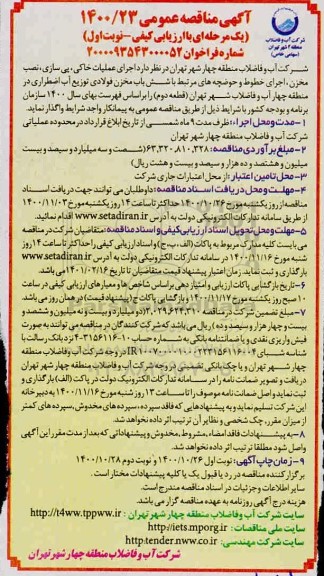 شرکت آب و فاضلاب
منطقه ۴ شهر تهران
(سهامی خاص)
آگهی مناقصه عمومی ۱۴۰۰/۲۳
(یک مرحله‌ای با ارزیابی کیفی – نوبت اول)
شماره فراخوان ۲۰۰۰۰۹۳۵۴۳۰۰۰۰۵۲
شرکت آب و فاضلاب منطقه چهار شهر تهران در نظر دارد اجرای عملیات خاکی، پی سازی، نصب
مخزن، اجرای خطوط و حوضچه های مرتبط با شش باب مخزن فولادی توزیع آب اضطراری در
منطقه چهار آب و فاضلاب شهر تهران (قطعه دوم) را بر اساس فهرست بهای سال ۱۴۰۰ سازمان
برنامه و بودجه کشور با شرایط ذیل از طریق مناقصه عمومی به پیمانکار واجد شرایط واگذار نماید.
۱-مدت و محل اجراء: ظرف مدت ۹ ماه شمسی از تاریخ ابلاغ قرارداد در محدوده عملیاتی
شرکت آب و فاضلاب منطقه چهار شهر تهران
۲-مبلغ برآوردی مناقصه: ۶۳,۳۲۰,۸۱۰,۳۲۸ (شصت و سه میلیارد و سیصد و بیست
میلیون و هشتصد و ده هزار و سیصد و بیست و هشت ریال)
۳-محل تامین اعتبار: از محل اعتبارات جاری شرکت
۴-مهلت و محل دریافت اسناد مناقصه: داوطلبان می توانند جهت دریافت اسناد
مناقصه از روز یکشنبه مورخ ۱۴۰۰/۱۰/۲۶ حداکثر تا ساعت ۱۴ روز یکشنبه مورخ ۱۴۰۰/۱۱/۰۳
از طریق سامانه تدارکات الکترونیکی دولت به آدرس www.setadiran.ir اقدام نمائید.
۵-مهلت و محل تحویل اسناد ارزیابی کیفی و اسناد مناقصه: متقاضیان شرکت در مناقصه
می بایست کلیه مدارک مربوط به پاکات (الف، ب، ج) و اسناد ارزیابی کیفی را حداکثر تا ساعت ۱۴ روز
شنبه مورخ ۱۴۰۰/۱۱/۱۶ در سامانه تدارکات الکترونیکی دولت به آدرس www.setadiran.ir
بارگذاری و ثبت نماید. زمان اعتبار پیشنهاد قیمت متقاضیان تا تاریخ ۱۴۰۱/۰۲/۱۶ می باشد.
۶-تاریخ بازگشایی پاکات ارزیابی و امتیاز دهی بر اساس شاخص ها و معیارهای ارزیابی کیفی در ساعت
۱۰ صبح روز یکشنبه مورخ ۱۴۰۰/۱۱/۱۷ و بازگشایی پاکات ج (پیشنهاد قیمت) در همان روز می باشد.
۷-مبلغ تضمین شرکت در مناقصه ۲,۰۲۹,۶۲۴,۳۱۰ (دو میلیارد و بیست و نه میلیون و ششصد و
بیست و چهار هزار و سیصد و ده) ریال می باشد که شرکت کنندگان در مناقصه می توانند به صورت
فیش واریزی نقدی و یا ضمانتنامه بانکی به شماره حساب
نزد بانک رسالت با
در وجه شرکت آب و فاضلاب منطقه
چهار شهر تهران و یا چک بانکی تضمینی در وجه شرکت آب و فاضلاب منطقه چهار شهر تهران
دریافت و تصویر ضمانت نامه را در سامانه تدارکات الکترونیک دولت در پاکت (الف) بارگذاری و
ثبت نماید و اصل ضمانت نامه موصوف را تا ساعت ۱۳ روز شنبه مورخ ۱۴۰۰/۱۱/۱۶ به دبیرخانه
این شرکت تسلیم نماید و به پیشنهادهایی که فاقد سپرده، سپرده های مخدوش، سپرده های کمتر
از میزان مقرر، چک شخصی و نظایر آن ترتیب اثر داده نخواهد شد.
۸-به پیشنهادات فاقد امضاء، مشروط، مخدوش و پیشنهاداتی که بعد از مدت مقرر این آگهی
واصل شود مطلقا ترتیب اثر داده نخواهد شد.
۹-زمان چاپ آگهی: نوبت اول ۱۴۰۰/۱۰/۲۶ و نوبت دوم ۱۴۰۰/۱۰/۲۸
برگزار کننده مناقصه در رد یا قبول یک یا کلیه پیشنهادات مختار است.
سایر اطلاعات و جزئیات در اسناد مناقصه مندرج است.
هزینه درج آگهی روزنامه به عهده مناقصه گزار می باشد.
سایت شرکت آب و فاضلاب منطقه چهار شهر تهران: http://t4ww.tppww.ir
سایت ملی مناقصات: http://iets.mporg.ir
سایت شرکت مهندسی: http:tender.nww.co.ir
شرکت آب و فاضلاب منطقه چهار شهر تهران